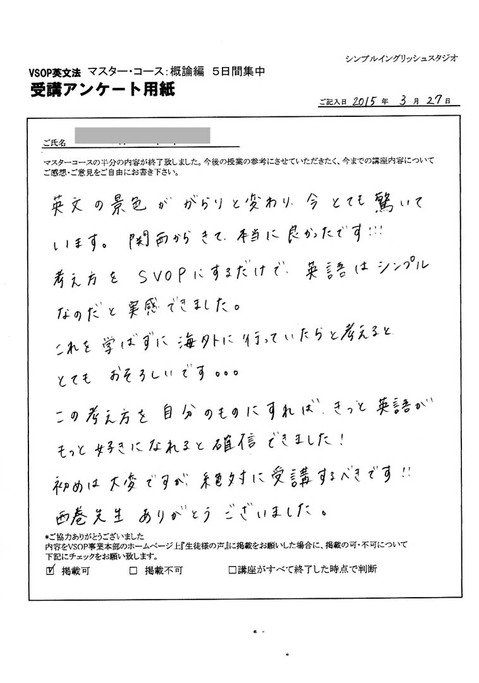 シンプルイングリッシュスタジオ
VSOP英文法 マスター・コース：概論編 5日間集中
受講アンケート用紙
ご記入日 2015 年 3 月 27 日
ご氏名
マスターコースの半分の内容が終了致しました。今後の授業の参考にさせていただきたく、今までの講座内容について
ご感想・ご意見をご自由にお書き下さい。
英文の景色が がらりと変わり、今 とても 驚いて
います。 関西から きて、本当に 良かったです!!!
考え方を SVOPにするだけで、英語は シンプル
なのだと 実感できました。
これを 学ばずに 海外に 行っていたらと考えると
とても おそろしいです。。。
この考え方を 自分のものにすれば、きっと 英語が
もっと 好きに なれると 確信 できました!
初めは 大変ですが、絶対に 受講するべきです!!
西巻先生 ありがとう ございました。
*ご協力ありがとうございました
内容をVSOP事業本部のホームページ上『生徒様の声』に掲載をお願いした場合に、掲載の可・不可について
下記にチェックをお願い致します。
☑ 掲載可 □ 掲載不可 □講座がすべて終了した時点で判断